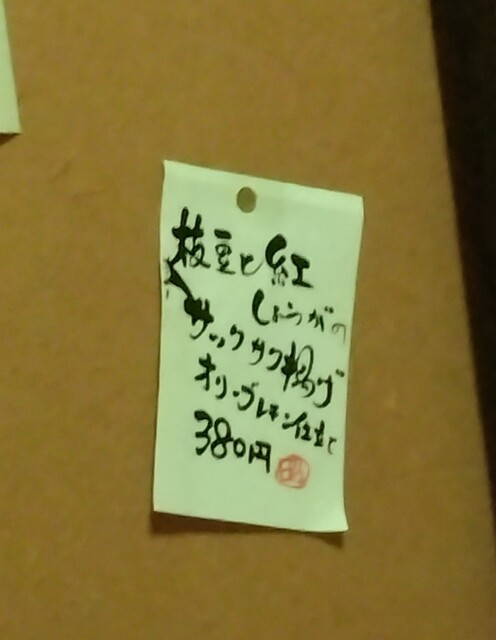 枝豆と紅
しょうがの
サックサク揚げ
オリーブレモン仕立て
380円